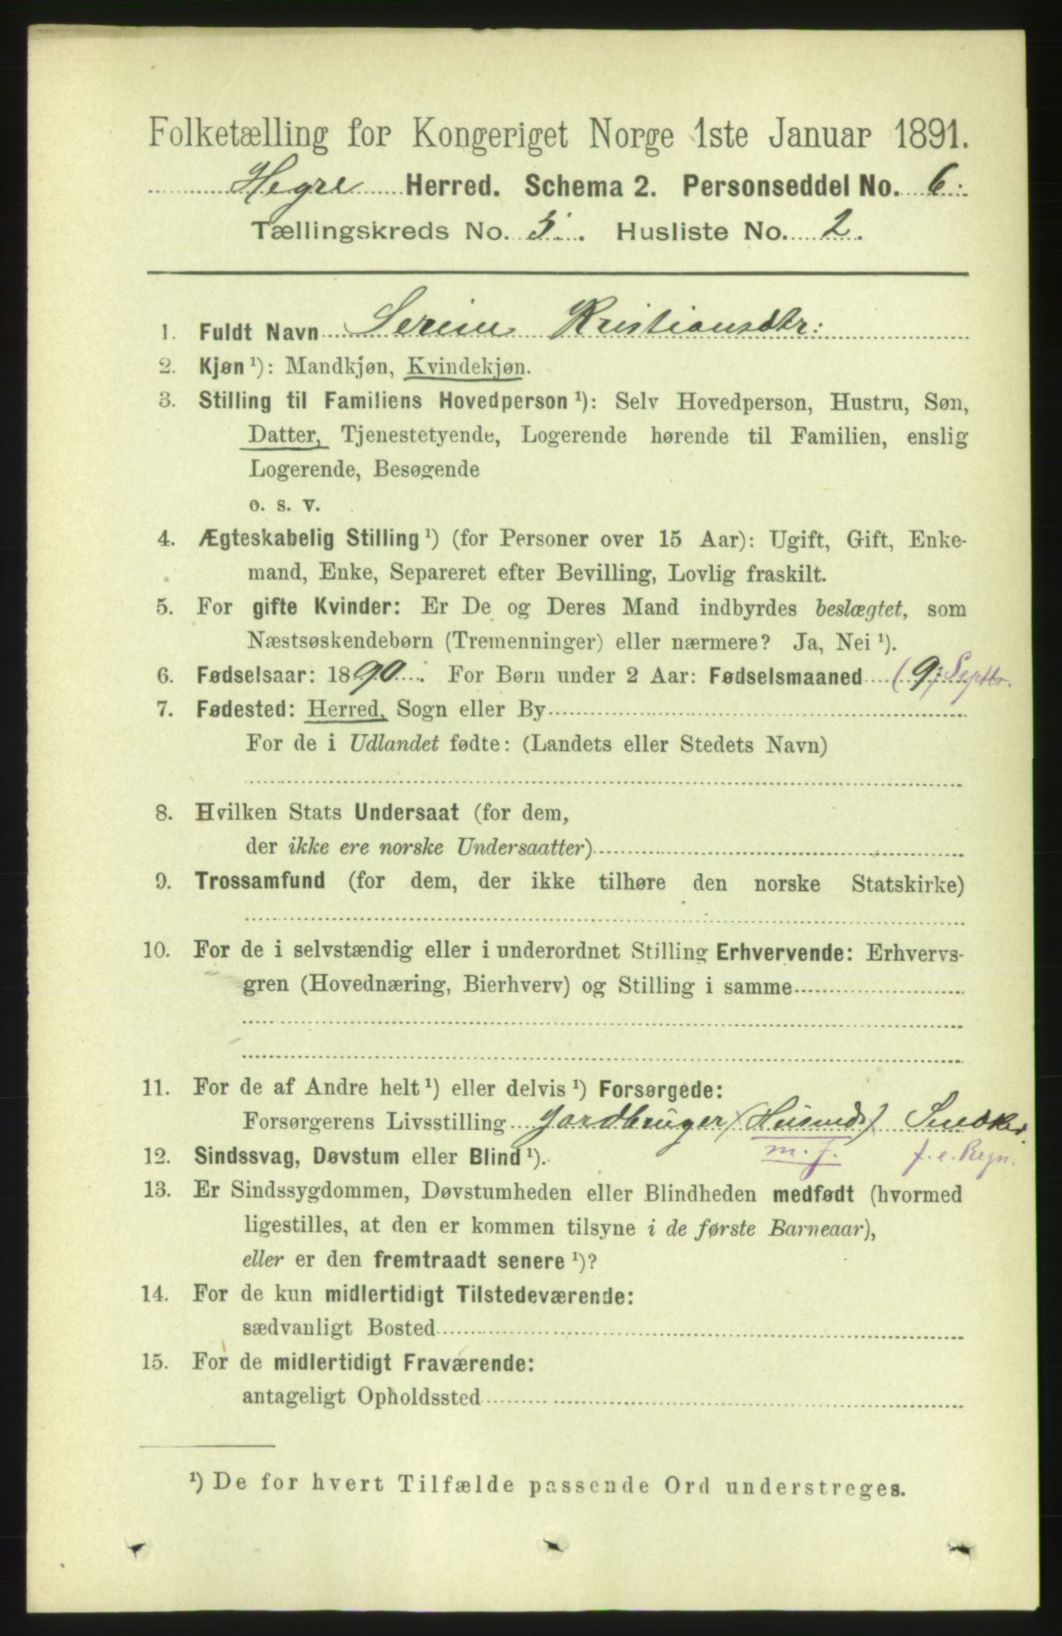 Folketælling for Kongeriget Norge 1ste Januar 1891.
Hegre Herred. Schema 2. Personseddel No. 6.
Tællingskreds No. 5. Husliste No. 2.
1. Fuldt Navn Serine Kristiansdtr:
2. Kjøn ¹): Mandkjøn, Kvindekjøn.
3. Stilling til Familiens Hovedperson ¹): Selv Hovedperson, Hustru, Søn,
Datter, Tjenestetyende, Logerende hørende til Familien, enslig
Logerende, Besøgende
o. s. v.
4. Ægteskabelig Stilling ¹) (for Personer over 15 Aar): Ugift, Gift, Enke-
mand, Enke, Separeret efter Bevilling, Lovlig fraskilt.
5. For gifte Kvinder: Er De og Deres Mand indbyrdes beslægtet, som
Næstsøskendebørn (Tremenninger) eller nærmere? Ja, Nei ¹).
6. Fødselsaar: 1890. For Børn under 2 Aar: Fødselsmaaned (9) Septbr.
7. Fødested: Herred, Sogn eller By
For de i Udlandet fødte: (Landets eller Stedets Navn)
8. Hvilken Stats Undersaat (for dem,
der ikke ere norske Undersaatter)
9. Trossamfund (for dem, der ikke tilhøre den norske Statskirke)
10. For de i selvstændig eller i underordnet Stilling Erhvervende: Erhvervs-
gren (Hovednæring, Bierhverv) og Stilling i samme
11. For de af Andre helt ¹) eller delvis ¹) Forsørgede:
Forsørgerens Livsstilling Jordbruger (Husmd) Snedker
m. j. f. e. Regn.
12. Sindssvag, Døvstum eller Blind ¹).
13. Er Sindssygdommen, Døvstumheden eller Blindheden medfødt (hvormed
ligestilles, at den er kommen tilsyne i de første Barneaar),
eller er den fremtraadt senere ¹)?
14. For de kun midlertidigt Tilstedeværende:
sædvanligt Bosted
15. For de midlertidigt Fraværende:
antageligt Opholdssted
¹) De for hvert Tilfælde passende Ord understreges.